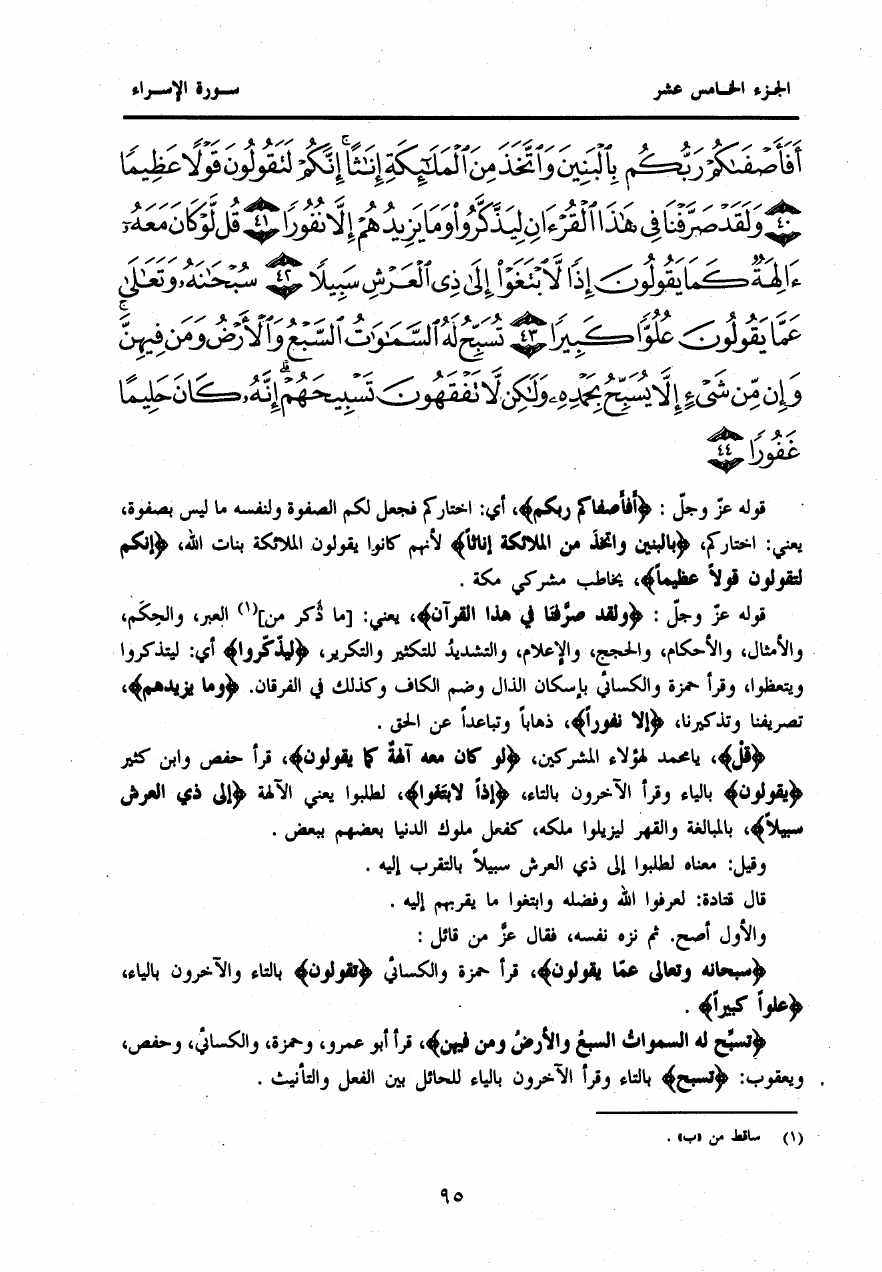 الجزء الخامس عشر
سورة الإسراء
أَفَأَصْفَىٰكُمْ رَبُّكُم بِٱلْبَنِينَ وَٱتَّخَذَ مِنَ ٱلْمَلَٰٓئِكَةِ إِنَٰثًا ۚ إِنَّكُمْ لَتَقُولُونَ قَوْلًا عَظِيمًا
٤٠ وَلَقَدْ صَرَّفْنَا فِى هَٰذَا ٱلْقُرْءَانِ لِيَذَّكَّرُوا۟ وَمَا يَزِيدُهُمْ إِلَّا نُفُورًا ٤١ قُل لَّوْ كَانَ مَعَهُۥٓ
ءَالِهَةٌ كَمَا يَقُولُونَ إِذًا لَّٱبْتَغَوْا۟ إِلَىٰ ذِى ٱلْعَرْشِ سَبِيلًا ٤٢ سُبْحَٰنَهُۥ وَتَعَٰلَىٰ
عَمَّا يَقُولُونَ عُلُوًّا كَبِيرًا ٤٣ تُسَبِّحُ لَهُ ٱلسَّمَٰوَٰتُ ٱلسَّبْعُ وَٱلْأَرْضُ وَمَن فِيهِنَّ ۚ
وَإِن مِّن شَىْءٍ إِلَّا يُسَبِّحُ بِحَمْدِهِۦ وَلَٰكِن لَّا تَفْقَهُونَ تَسْبِيحَهُمْ ۗ إِنَّهُۥ كَانَ حَلِيمًا
غَفُورًا ٤٤
قوله عزّ وجلّ : ﴿أفأصفاكم ربكم﴾، أي: اختاركم فجعل لكم الصفوة ولنفسه ما ليس بصفوة،
يعني: اختاركم، ﴿بالبنين واتخذَ من الملائكة إناثاً﴾ لأنهم كانوا يقولون الملائكة بنات الله، ﴿إنكم
لتقولون قولاً عظيماً﴾، يخاطب مشركي مكة .
قوله عزّ وجلّ : ﴿ولقد صرَّفنا في هذا القرآن﴾، يعني: [ما ذُكر من](١) العبر، والحِكَم،
والأمثال، والأحكام، والحجج، والإعلام، والتشديدُ للتكثير والتكرير، ﴿ليذّكّروا﴾ أي: ليتذكروا
ويتعظوا، وقرأ حمزة والكسائي بإسكان الذال وضم الكاف وكذلك في الفرقان. ﴿وما يزيدهم﴾،
تصريفنا وتذكيرنا، ﴿إلا نفوراً﴾، ذهاباً وتباعداً عن الحق .
﴿قلْ﴾، يامحمد لهؤلاء المشركين، ﴿لو كان معه آلهةٌ كما يقولون﴾، قرأ حفص وابن كثير
﴿يقولون﴾ بالياء وقرأ الآخرون بالتاء، ﴿إذاً لابتَغوا﴾، لطلبوا يعني الآلهة ﴿إلى ذي العرش
سبيلاً﴾، بالمبالغة والقهر ليزيلوا ملكه، كفعل ملوك الدنيا بعضهم ببعض .
وقيل: معناه لطلبوا إلى ذي العرش سبيلاً بالتقرب إليه .
قال قتادة: لعرفوا الله وفضله وابتغوا ما يقربهم إليه .
والأول أصح. ثم نزه نفسه، فقال عزَّ من قائل :
﴿سبحانه وتعالى عمّا يقولون﴾، قرأ حمزة والكسائي ﴿تقولون﴾ بالتاء والآخرون بالياء،
﴿علواً كبيراً﴾ .
﴿تسبّح له السمواتُ السبعُ والأرضُ ومن فيهن﴾، قرأ أبو عمرو، وحمزة، والكسائي، وحفص،
ويعقوب: ﴿تسبح﴾ بالتاء وقرأ الآخرون بالياء للحائل بين الفعل والتأنيث .
(١) ساقط من «ب» .
٩٥